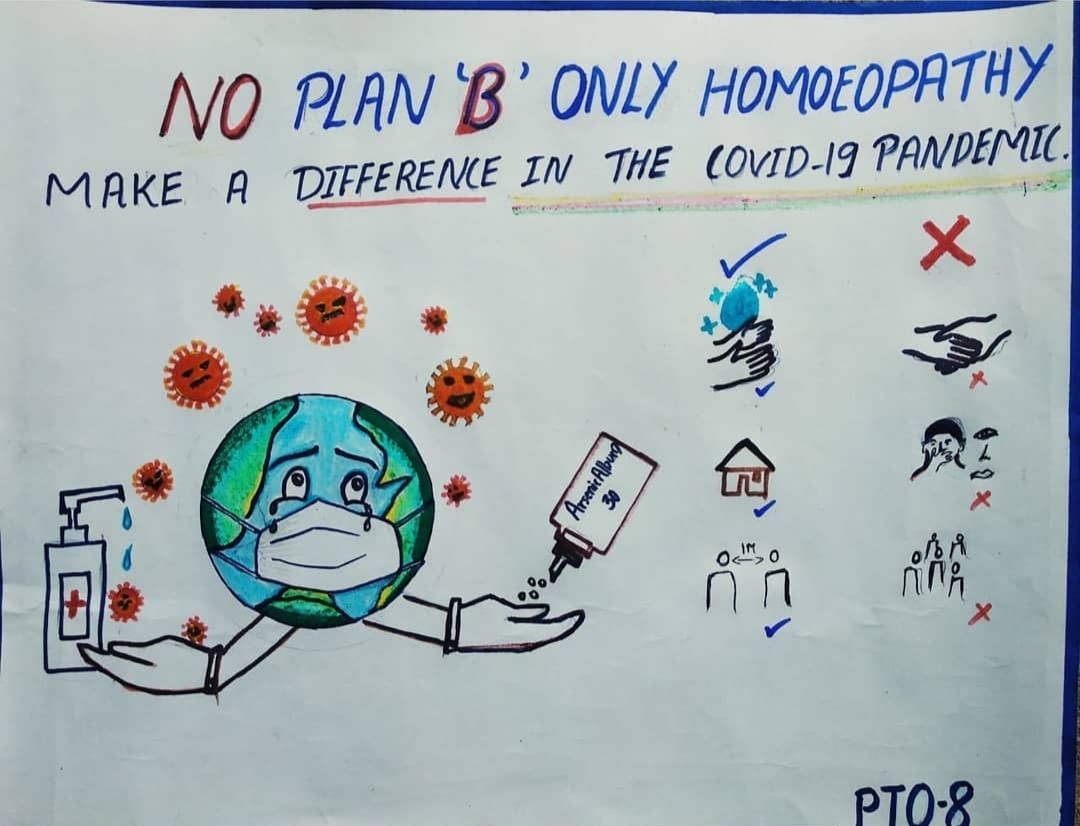 NO PLAN 'B' ONLY HOMOEOPATHY
MAKE A DIFFERENCE IN THE COVID-19 PANDEMIC.
Arsenic Album
30
1M
PTO-8